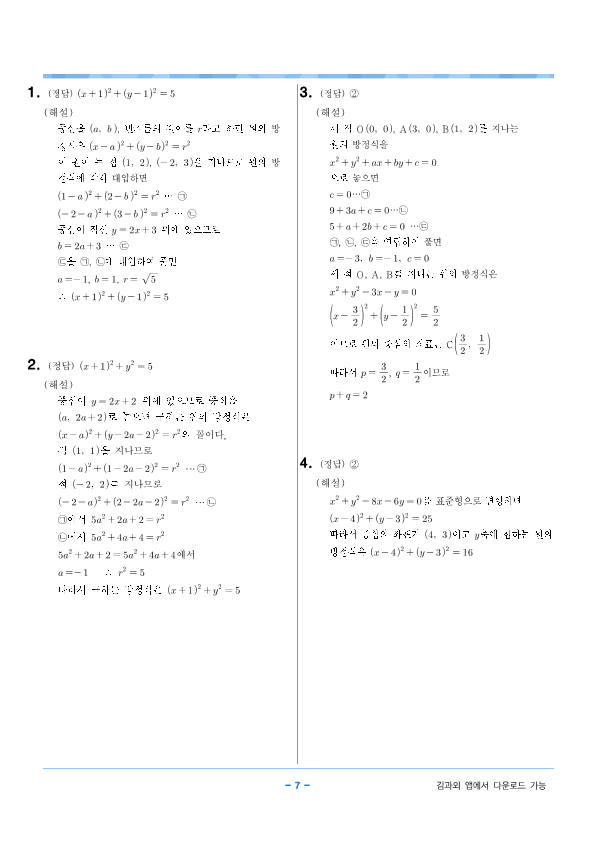 1. (정답) (x+1)²+(y-1)²=5
(해설)
중심을 (a, b), 반지름의 길이를 r라고 하면 원의 방
정식은 (x-a)²+(y-b)²=r²
이 원이 두 점 (1, 2), (-2, 3)을 지나므로 원의 방
정식에 각각 대입하면
(1-a)²+(2-b)²=r² … ㉠
(-2-a)²+(3-b)²=r² … ㉡
중심이 직선 y=2x+3 위에 있으므로
b=2a+3 … ㉢
㉢을 ㉠, ㉡에 대입하여 풀면
a=-1, b=1, r=√5
∴ (x+1)²+(y-1)²=5
2. (정답) (x+1)²+y²=5
(해설)
중심이 y=2x+2 위에 있으므로 중심을
(a, 2a+2)로 놓으면 구하는 원의 방정식은
(x-a)²+(y-2a-2)²=r²의 꼴이다.
점 (1, 1)을 지나므로
(1-a)²+(1-2a-2)²=r² …㉠
점 (-2, 2)를 지나므로
(-2-a)²+(2-2a-2)²=r² …㉡
㉠에서 5a²+2a+2=r²
㉡에서 5a²+4a+4=r²
5a²+2a+2=5a²+4a+4에서
a=-1 ∴ r²=5
따라서 구하는 방정식은 (x+1)²+y²=5
3. (정답) ②
(해설)
세 점 O(0, 0), A(3, 0), B(1, 2)를 지나는
원의 방정식을
x²+y²+ax+by+c=0
으로 놓으면
c=0…㉠
9+3a+c=0…㉡
5+a+2b+c=0 …㉢
㉠, ㉡, ㉢을 연립하여 풀면
a=-3, b=-1, c=0
세 점 O, A, B를 지나는 원의 방정식은
x²+y²-3x-y=0
(x-3/2)²+(y-1/2)²=5/2
이므로 원의 중심의 좌표는 C(3/2, 1/2)
따라서 p=3/2, q=1/2이므로
p+q=2
4. (정답) ②
(해설)
x²+y²-8x-6y=0을 표준형으로 변형하면
(x-4)²+(y-3)²=25
따라서 중심의 좌표가 (4, 3)이고 y축에 접하는 원의
방정식은 (x-4)²+(y-3)²=16
- 7 -
김과외 앱에서 다운로드 가능